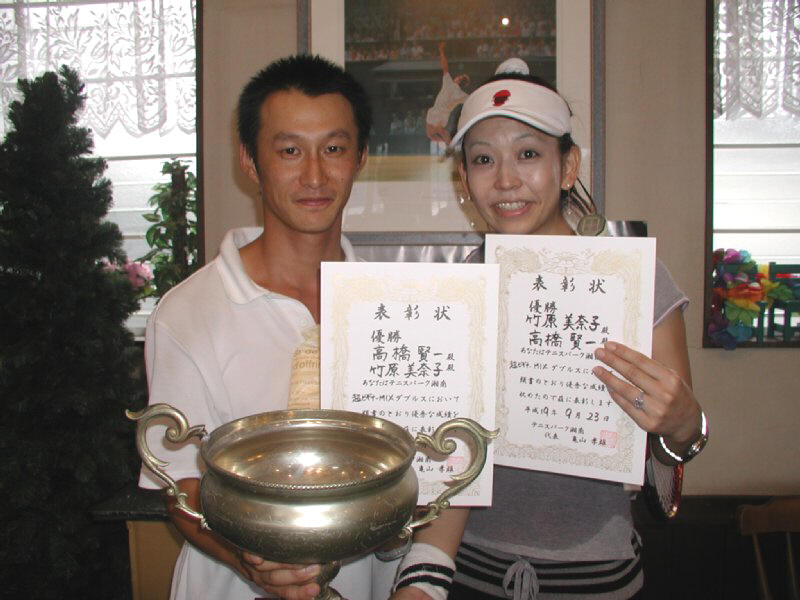 表彰状
優勝
高橋賢一殿
竹原美奈子殿
あなたはテニスパーク湘南
超ビギナーMIXダブルスにおいて
頭書のとおり優秀な成績を
表彰状
優勝
竹原美奈子殿
高橋賢一殿
あなたはテニスパーク湘南
超ビギナーMIXダブルスに
頭書のとおり優秀な成
収めたので茲に表彰します
平成19年9月23日
テニスパーク湘南
代表 亀山孝雄